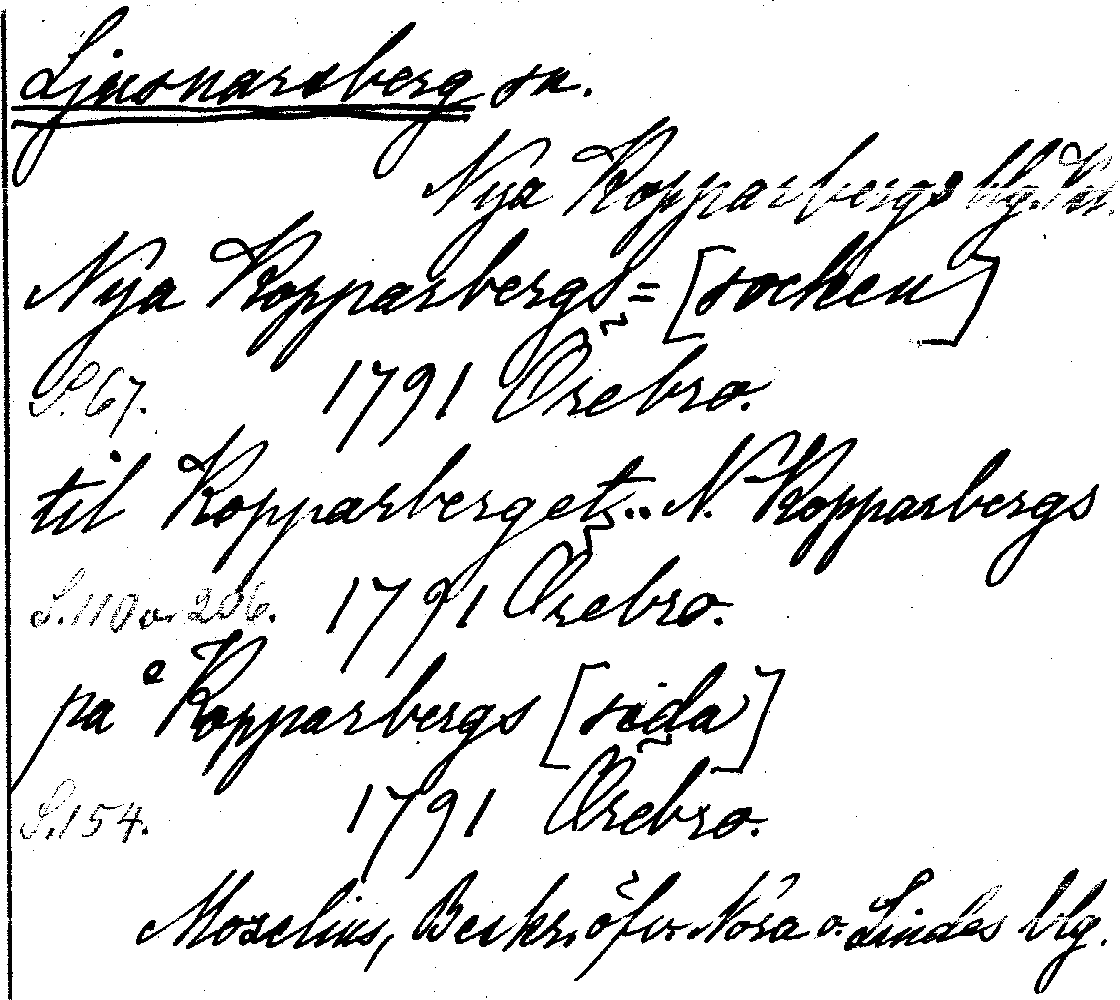 Ljusnarsberg sn.
Nya Kopparbergs blg.
Nya Kopparbergs= [socken]
S. 67. 1791 Örebro.
til Kopparberget.. N. Kopparbergs
S. 110 o. 206. 1791 Örebro.
på Kopparbergs [sida]
S. 154. 1791 Örebro.
Moselius, Beskr. öfv. Nora o. Lindes blg.